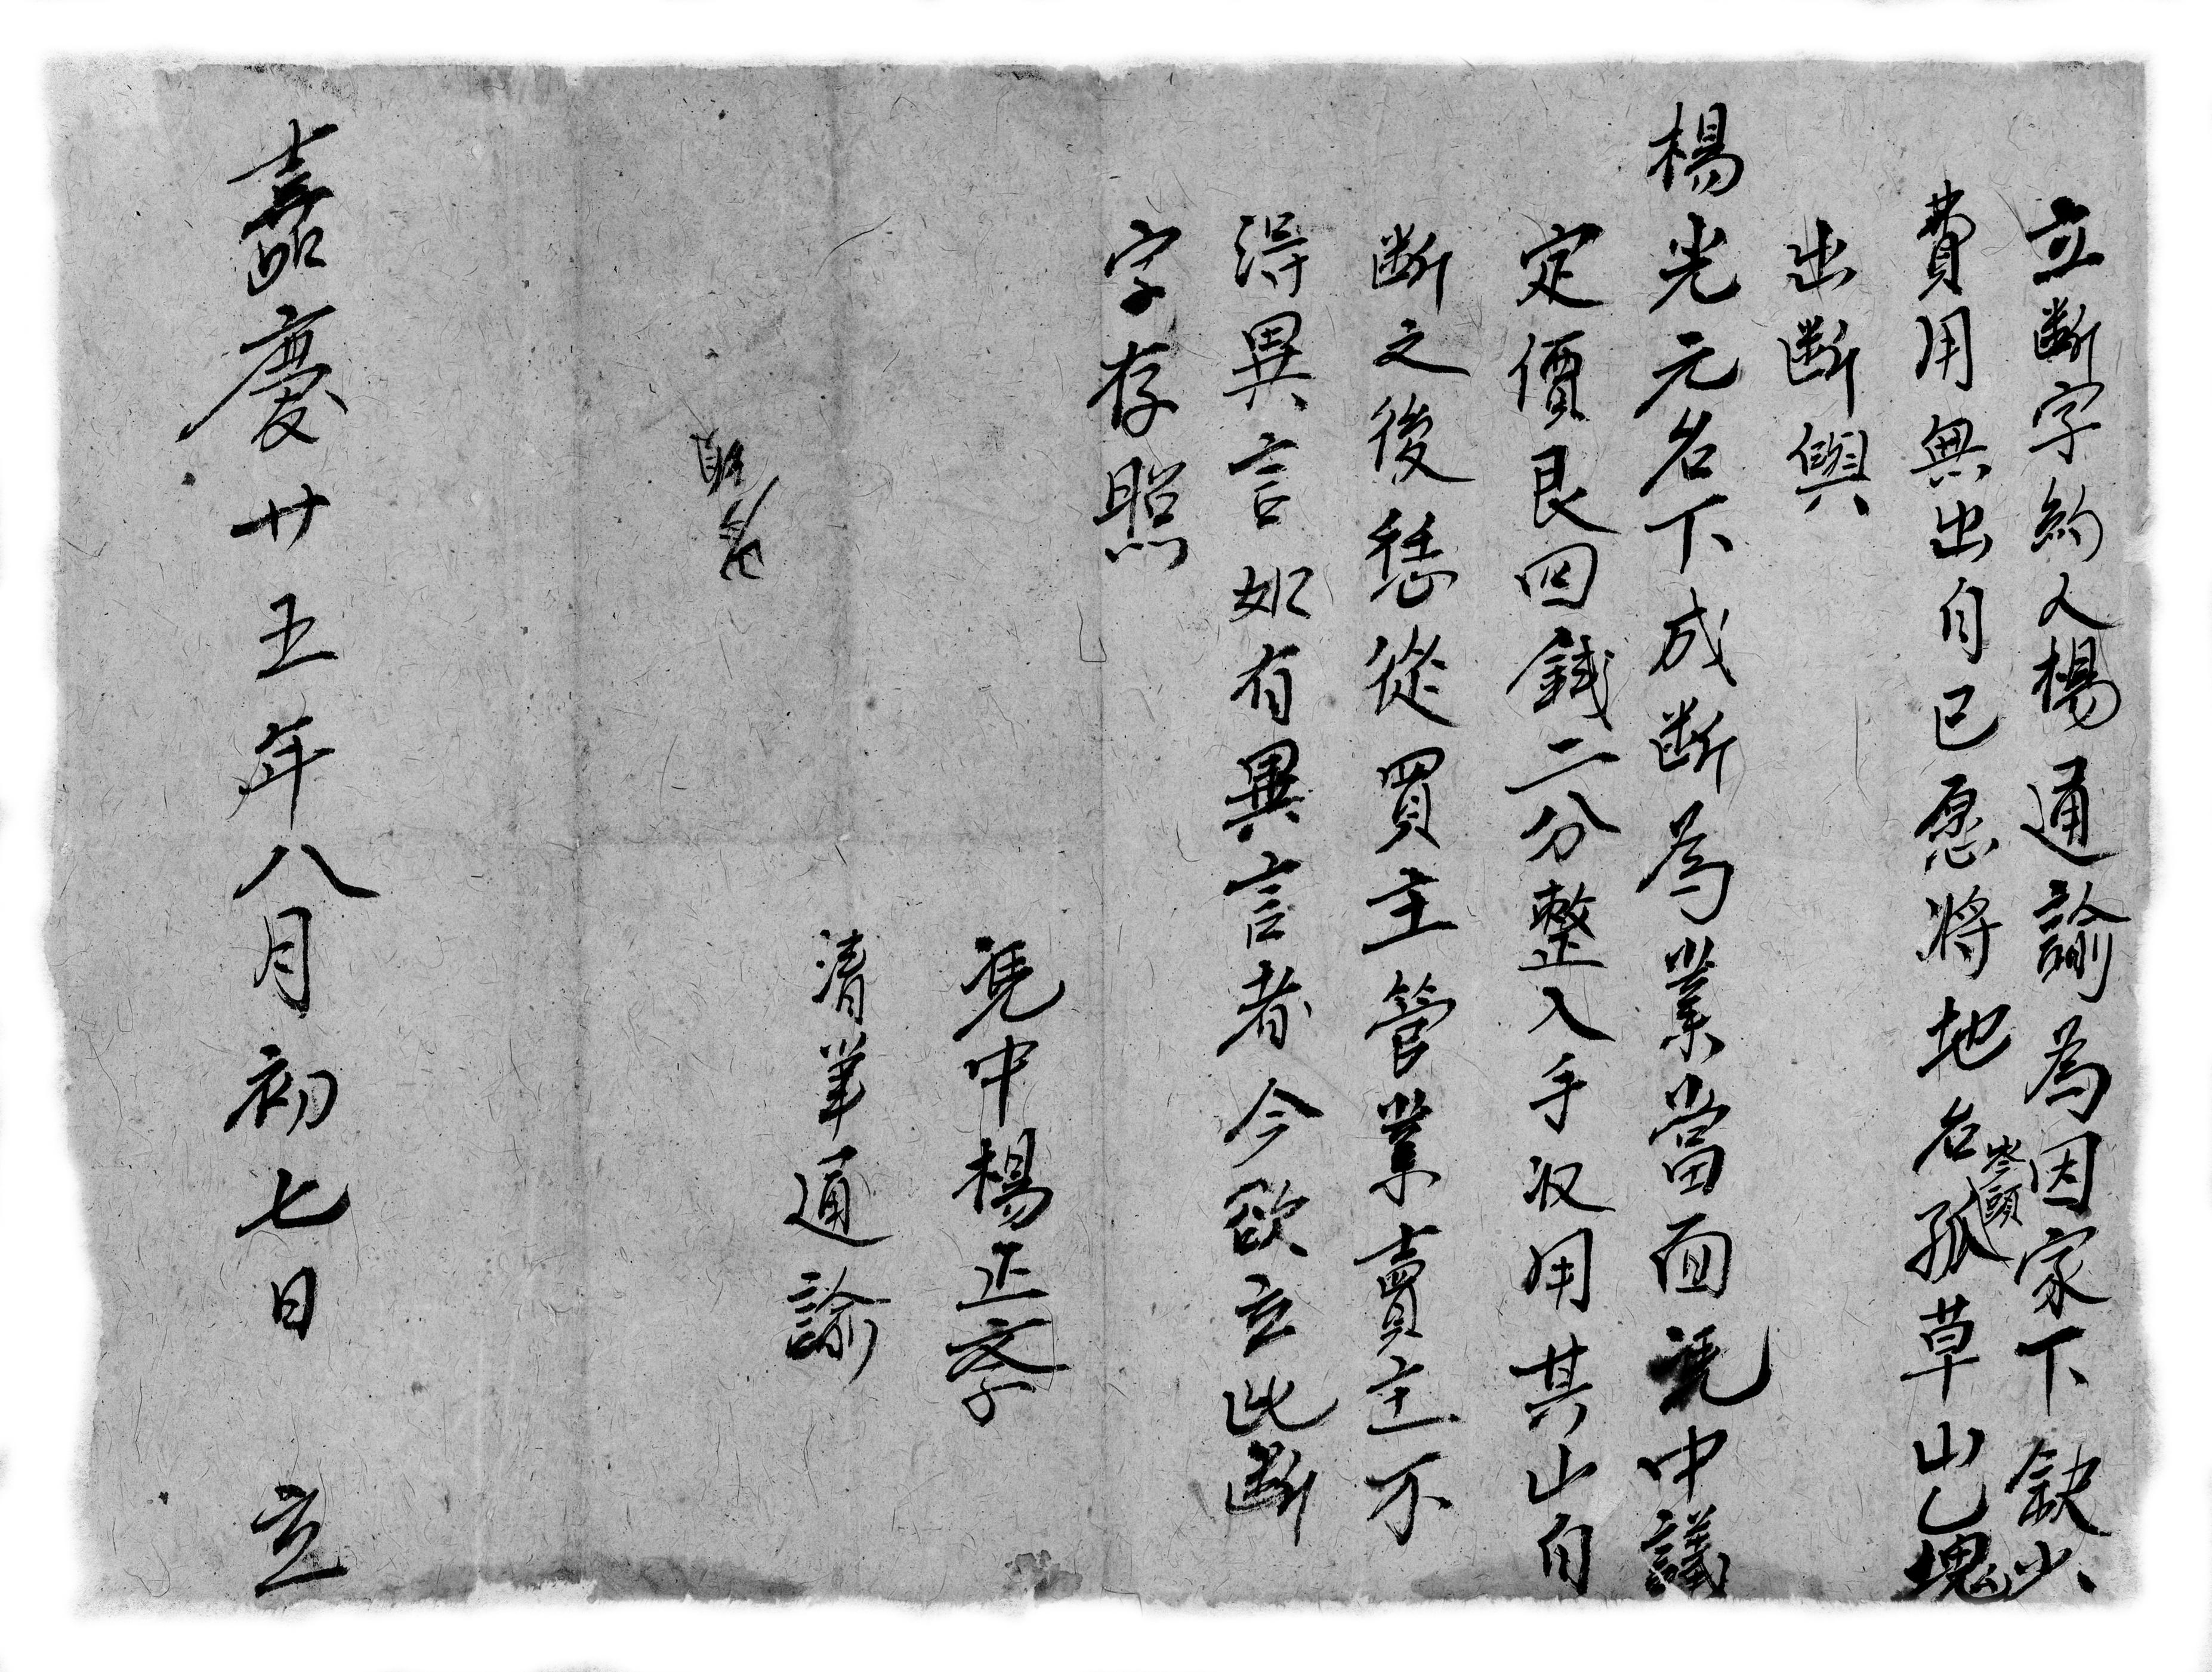 立断字約人楊通諭為因家下缺少
費用無出自已愿将地名岑頭孤草山乙塊
出断與
楊光元名下成断為業當面凭中議
定價艮四錢二分整入手收用其山自
断之後恁從買主管業賣主不
得異言如有異言者今欲立此断
字存照
凭中楊正孝
清筆通諭
嘉慶廿五年八月初七日 立